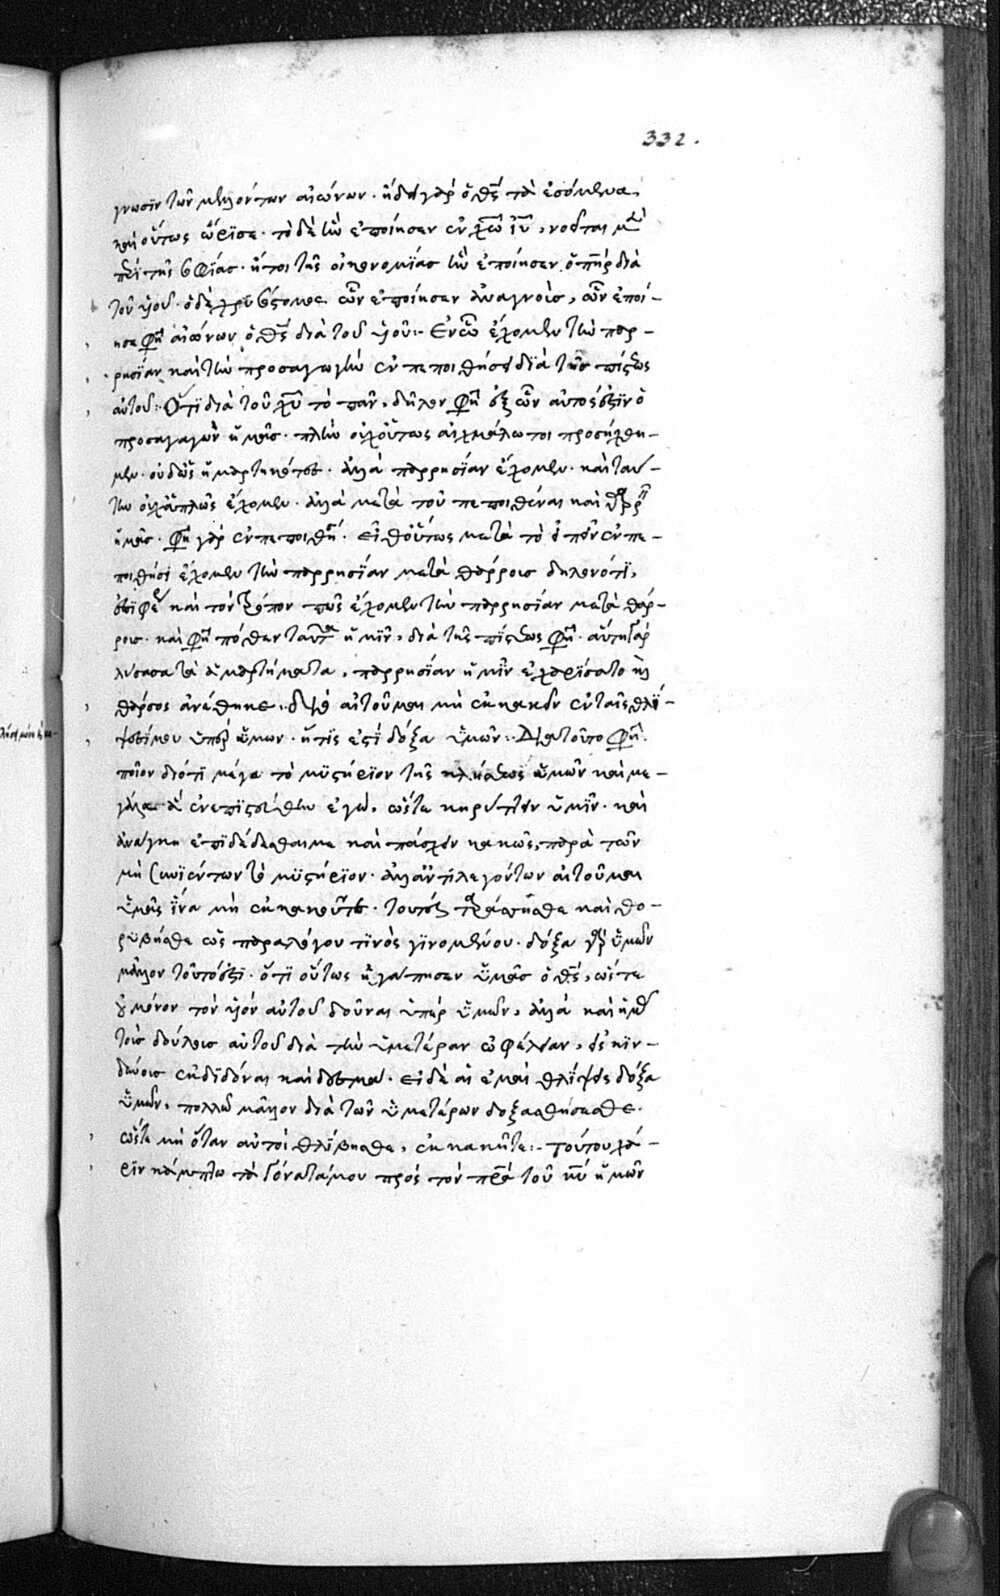 332.
γνωσϊν τῶν μελλόντων αἰώνων· ἤδει γὰρ ὁ θς τὰ ἐσόμενα
καὶ οὕτως ὥρϊσε· τὸ δὲ ἣν ἐποίησεν ἐν χω ιυ, νοεῖται
περὶ τῆς σοφίας· ἤτοι τῆς οἰκονομίας ἣν ἐποίησεν ὁ πηρ διὰ
τοῦ υἱοῦ· ὁ δὲ ὧν ἐποίησεν ἀναγνοὺς, ὧν ἐποί-
ησε φησὶ αἰώνων ὁ θς διὰ τοῦ υἱοῦ:- Ἐν ᾧ ἔχομεν τὴν παρ-
ρησίαν καὶ τὴν προσαγωγὴν ἐν πεποιθήσει διὰ τῆς πίστεως
αὐτοῦ:- Ὅτϊ διὰ τοῦ χυ τὸ πᾶν, δῆλον φησὶ ἐξ ὧν αὐτός ἐστϊν ὁ
προσαγαγὼν ἡμᾶς· πλὴν οὐχ οὕτως αἰχμάλωτοι προσήχθη-
μεν· οὐδ ὡς ἡμαρτηκότες· ἀλλὰ παρρησίαν ἔχομεν· καὶ ταύ-
την οὐχ ἁπλῶς ἔχομεν· ἀλλὰ μετὰ τοῦ πεποιθέναι καὶ θαρρεῖν
ἡμᾶς· φησὶ γὰρ ἐν πεποιθήσει· εἶθ οὕτως μετὰ τὸ εἰπεῖν ἐν πε-
ποιθήσει ἔχομεν τὴν παρρησϊαν μετὰ θάρρους δηλονότϊ,
καὶ τὸν τρόπον πῶς ἔχομεν τὴν παρρησίαν μετὰ θάρ-
ρους· καὶ φησὶ πόθεν ταῦτα ἡμῖν, διὰ τῆς πίστεως φησὶ· αὕτη γὰρ
λύσασα τὰ ἁμαρτήματα, παρρησίαν ἡμῖν ἐχαρϊσατο καὶ
θάρσος ἀνέθηκε:- διὸ αἰτοῦμαι μὴ ἐκκακεῖν ἐν ταῖς θλί-
ψεσί μου ὑπὲρ ὑμων· ἥτϊς ἐστὶ δόξα ὑμῶν:- Διὰ τοῦτο φησὶ·
ποῖον διότϊ μέγα τὸ μϋστήρϊον τῆς κλήσεως ὑμῶν καὶ με-
γάλα ἃ ἐνεπϊστεύθην ἐγὼ, ὥστε κηρύττειν ὑμῖν· καὶ
ἀνάγκη ἐπϊδέδεσθαι με καὶ πάσχειν κακῶς, παρὰ τῶν
μὴ συνϊέντων τὸ μϋστήρϊον· ἀλλ ἀντιλεγόντων αἰτοῦμαι
ὑμᾶς ἵνα μὴ ἐκκακοῦντες· τουτέστι ταράσσησθε καὶ θο-
ρυβῆσθε ὡς παραλόγου τϊνὸς γϊνομένου· δόξα γὰρ ὑμῶν
μᾶλλον τοῦτό ἐστϊ· ὅτϊ οὕτως ἠγάπησεν ὑμᾶς ὁ θς, ὥστε
οὐ μόνον τὸν υἱόν αὐτοῦ δοῦναι ὑπὲρ ὑμῶν, ἀλλὰ καὶ ἡμᾶς
τοὺς δούλους αὐτοῦ διὰ τὴν ὑμετέραν ὠφέλειαν, εἰς κϊν-
δύνους ἐκδϊδόναι καὶ δεσμὰ· εἰ δὲ αἱ ἐμαὶ θλίψεις δόξα
ὑμῶν, πολλῷ μᾶλλον διὰ τῶν ὑμετέρων δοξασθήσεσθε·
ὥστε μὴ ὅταν αὐτοὶ θλίβησθε, ἐκκακῆτε:- Τούτου χά-
ρϊν κάμπτω τὰ γόνατά μου πρὸς τὸν πρα τοῦ κυ ἡμῶν